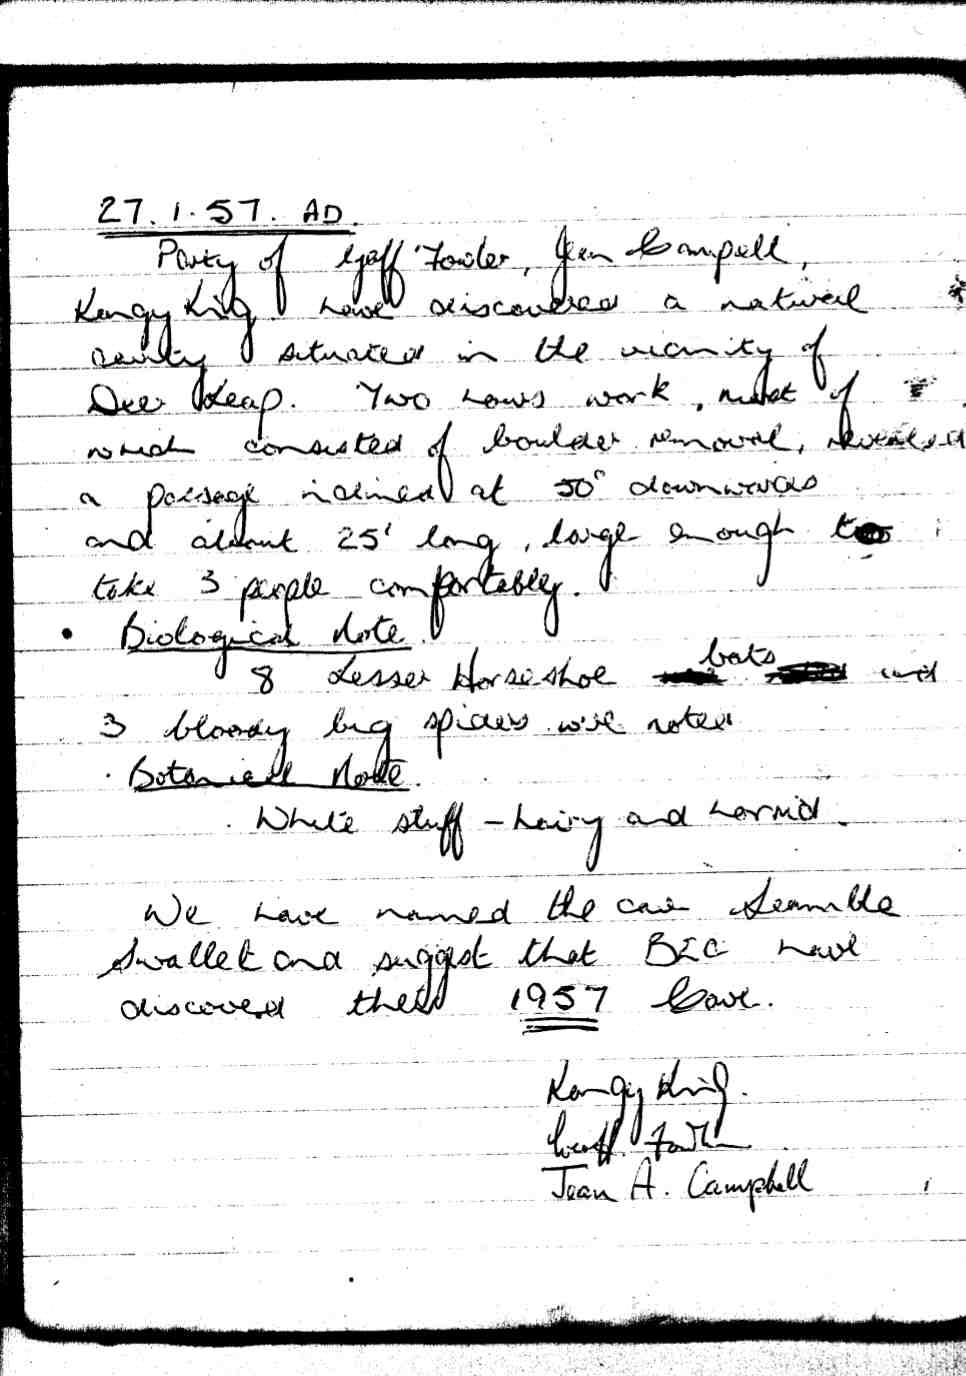 27.1.57. AD.
Party of Geoff Fowler, Jean Campell,
Kangy King have discovered a natural
cavity situated in the vicinity of
Deer Leap. Two hours work, most of
which consisted of boulder removal, revealed
a passage inclined at 50° downwards
and about 25' long, large enough to
take 3 people comfortably.
• Biological Note.
8 Lesser Horseshoe bats and
3 bloody big spiders were noted
Botanical Note.
White stuff - hairy and horrid.
We have named the cave
Swallet and suggest that BEC have
discovered their 1957 Cave.
Kangy King.
Geoff. Fowler
Jean A. Campbell